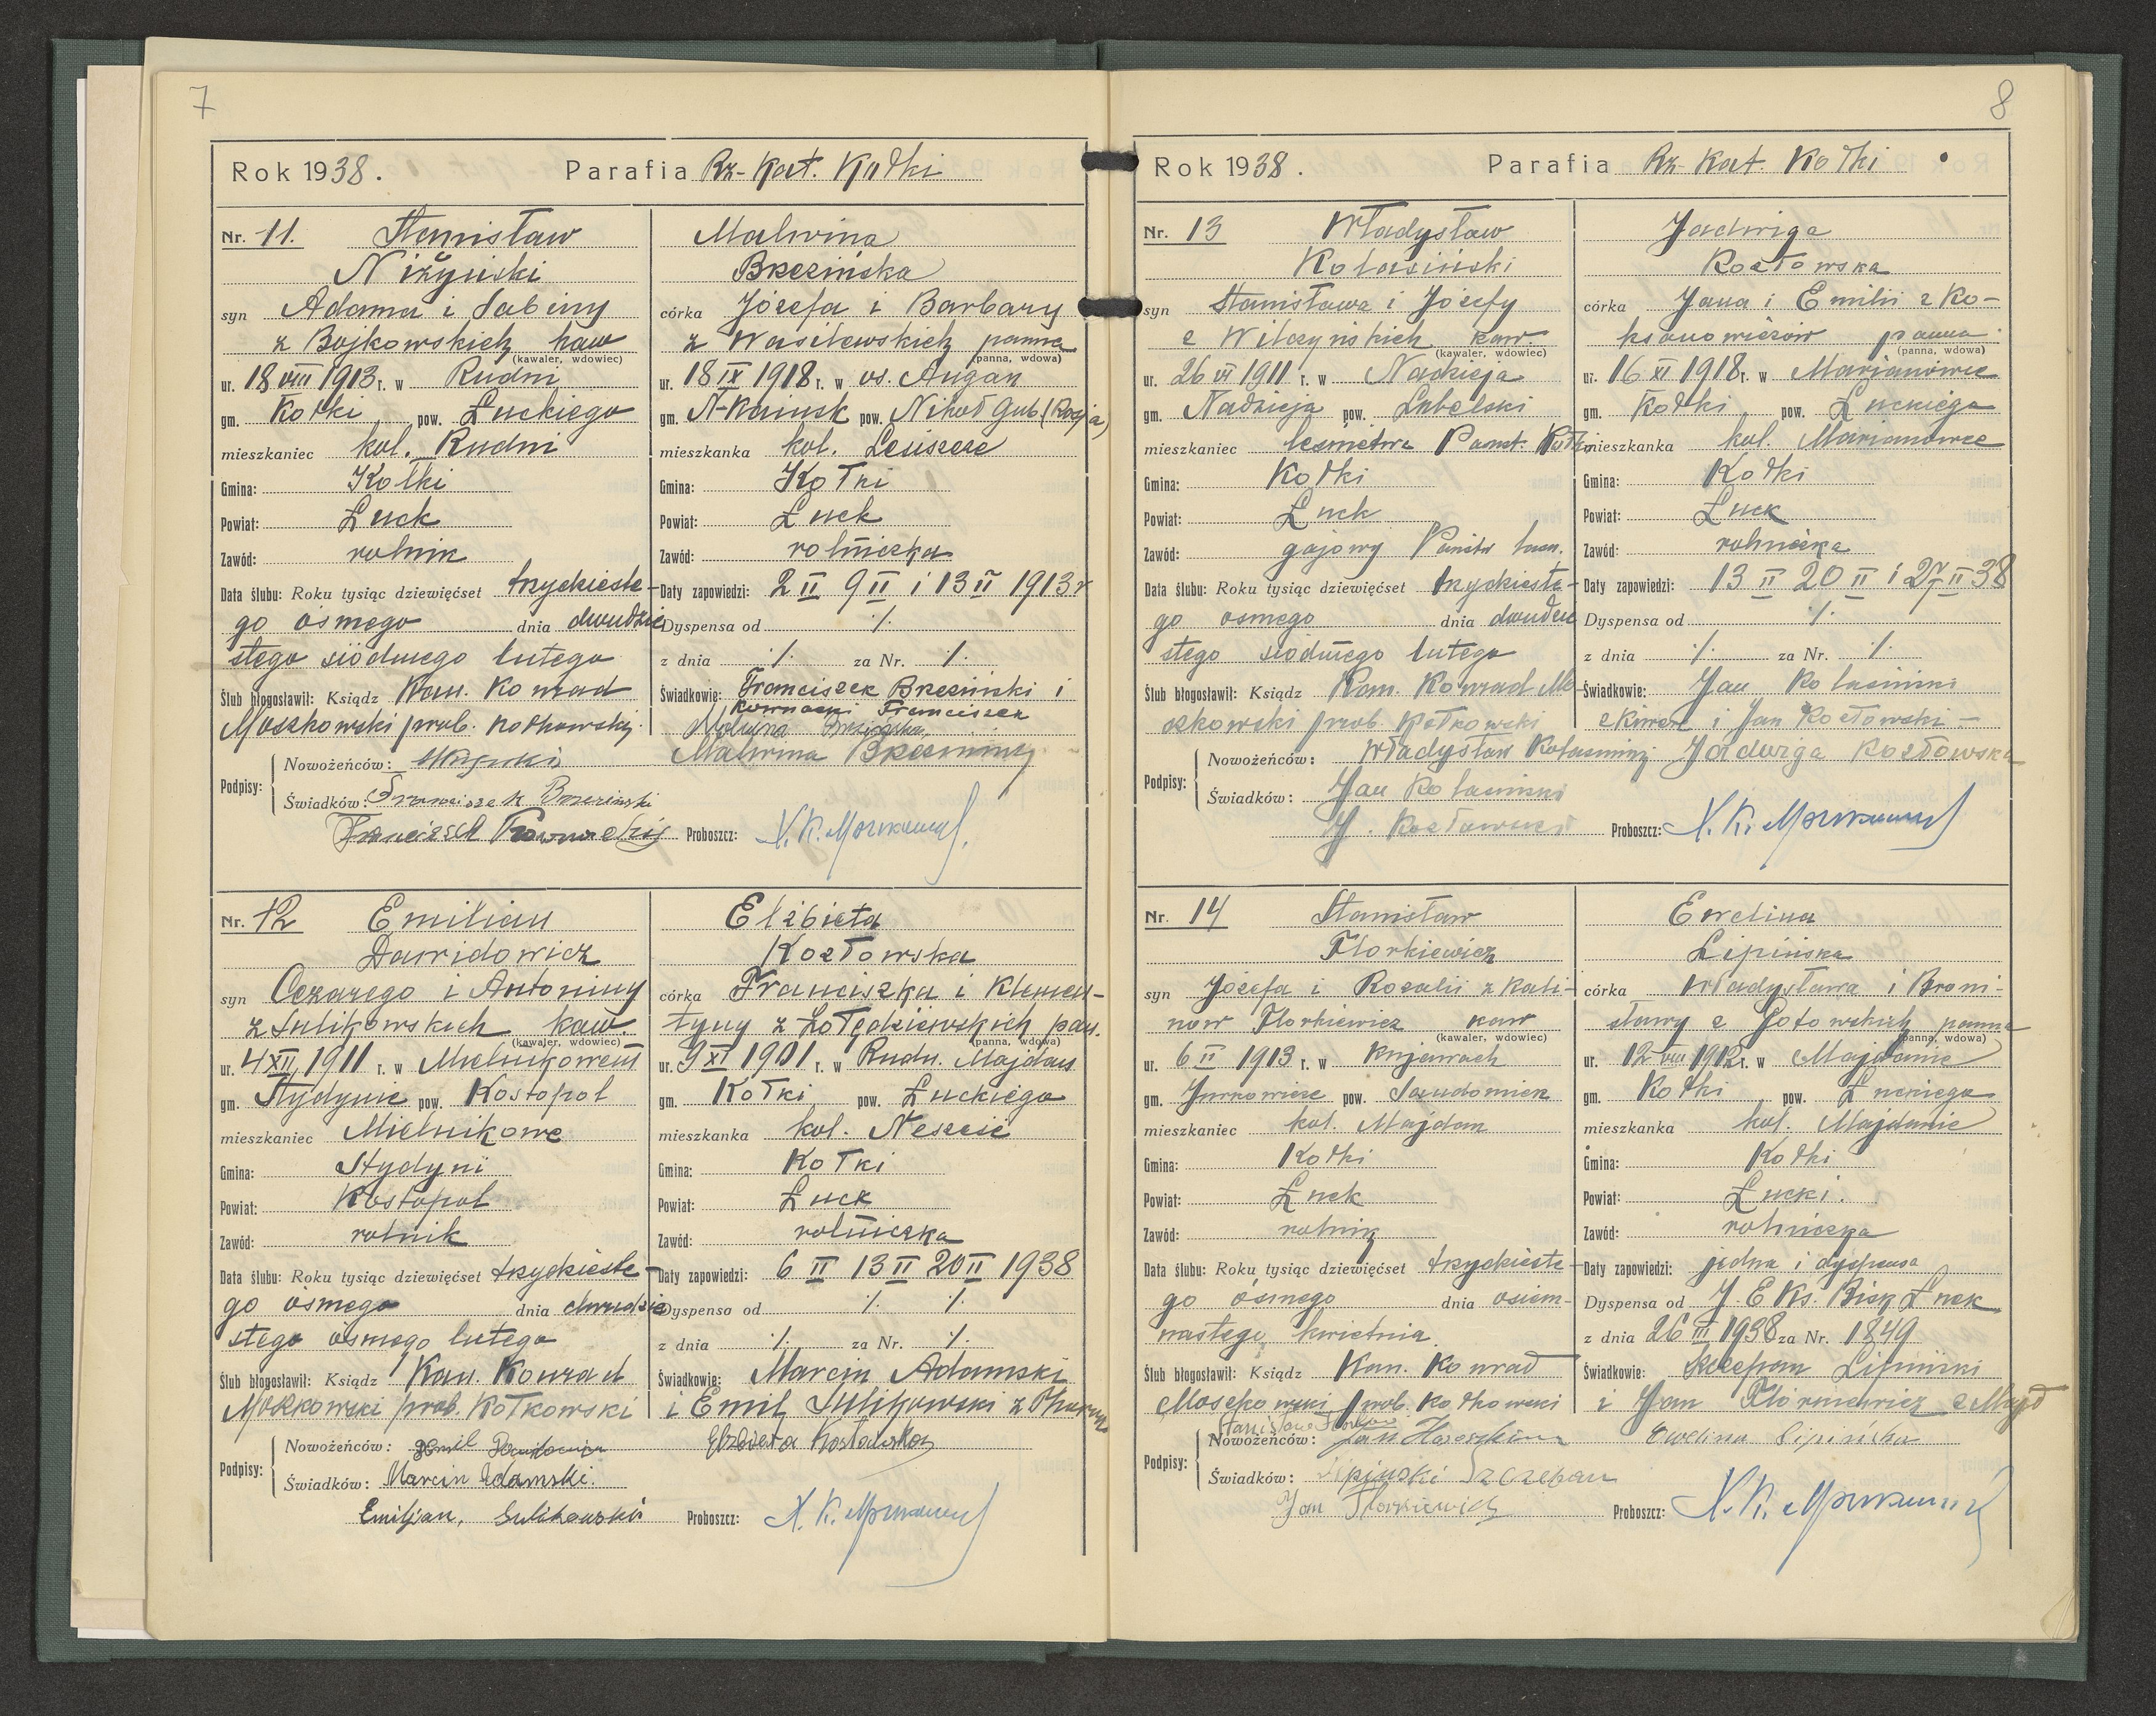 7
Rok 1938. Parafia Rz-Kat. Kołki
Nr. 11. Stanisław
Niżyński
syn Adama i Sabiny
z Bojkowskich kaw
(kawaler, wdowiec)
ur. 18 VIII 1913 r. w Rudni
gm. Kołki pow. Łuckiego
mieszkaniec kol. Rudni
Gmina: Kołki
Powiat: Łuck
Zawód: rolnik
Data ślubu: Roku tysiąc dziewięćset trzydzieste-
go ósmego dnia dwudzie
stego siódmego lutego
Ślub błogosławił: Ksiądz Kan. Konrad
Moszkowski prob. Kołkowski
Malwina
Brzezińska
córka Józefa i Barbary
z Wasilewskich panna
(panna, wdowa)
ur. 18 IX 1918 r. w os. Augan
gm. pow. Gub. (Rosja)
mieszkanka kol. Lesiszcze
Gmina: Kołki
Powiat: Łuck
Zawód: rolniczka
Daty zapowiedzi: 2 II 9 II i 13 II 1913 r
Dyspensa od ./.
z dnia ./. za Nr. ./.
Świadkowie: Franciszek Brzeziński i
Kornacki Franciszek
Malwina Brzezińska
Podpisy: Nowożeńców: Malwina
Świadków: Franciszek Brzeziński
Franciszek Proboszcz: X. K.
Nr. 12 Emilian
Dawidowicz
syn Cezarego i Antoniny
z Sulikowskich kaw
(kawaler, wdowiec)
ur. 4 XII 1911 r. w Mielnikowem
gm. Stydynie pow. Kostopol
mieszkaniec Mielnikowe
Gmina: Stydyni
Powiat: Kostopol
Zawód: rolnik
Data ślubu: Roku tysiąc dziewięćset trzydzieste-
go ósmego dnia dwudzie
stego ósmego lutego
Ślub błogosławił: Ksiądz Kan. Konrad
Moszkowski prob. Kołkowski
Elżbieta
Kozłowska
córka Franciszka i Klemen-
tyny z Żołędziewskich pan.
(panna, wdowa)
ur. 9 XI 1901 r. w Rudn. Majdan
gm. Kołki pow. Łuckiego
mieszkanka kol.
Gmina: Kołki
Powiat: Łuck
Zawód: rolniczka
Daty zapowiedzi: 6 II 13 II 20 II 1938
Dyspensa od ./. ./.
z dnia ./. za Nr. ./.
Świadkowie: Marcin Adamski
i Emil Sulikowski z
Podpisy: Nowożeńców: Emil Dawidowicz Elżbieta Kozłowska
Świadków: Marcin Adamski.
Emiljan, Sulikowski Proboszcz: X. K.
8
Rok 1938. Parafia Rz-Kat. Kołki
Nr. 13 Władysław
Kołasiński
syn Stanisława i Józefy
z Wilczyńskich kaw.
(kawaler, wdowiec)
ur. 26 VI 1911 r. w Nadzieja
gm. Nadzieja pow. Lubelski
mieszkaniec leśnictwa Państ. Kołki
Gmina: Kołki
Powiat: Łuck
Zawód: gajowy
Data ślubu: Roku tysiąc dziewięćset trzydzieste-
go ósmego dnia dwudzie
stego siódmego lutego
Ślub błogosławił: Ksiądz Kan. Konrad Mo-
szkowski prob. Kołkowski
Jadwiga
Kozłowska
córka Jana i Emilii z Ko-
ksanowiczów panna
(panna, wdowa)
ur. 16 XI 1918 r. w Marianówce
gm. Kołki pow. Łuckiego
mieszkanka kol. Marianówce
Gmina: Kołki
Powiat: Łuck
Zawód: rolniczka
Daty zapowiedzi: 13 II 20 II i 27 II 38
Dyspensa od ./.
z dnia ./. za Nr. ./.
Świadkowie: Jan Kołasiński
i Jan Kozłowski
Podpisy: Nowożeńców: Władysław Kołasiński Jadwiga Kozłowska
Świadków: Jan Kołasiński
J. Kozłowski Proboszcz: X. K.
Nr. 14 Stanisław
Florkiewicz
syn Józefa i Rozalii z Kali-
nów Florkiewicz kaw
(kawaler, wdowiec)
ur. 6 II 1913 r. w Kujawach
gm. Jurkowice pow. Sandomierz
mieszkaniec kol. Majdan
Gmina: Kołki
Powiat: Łuck
Zawód: rolnik
Data ślubu: Roku tysiąc dziewięćset trzydzieste-
go ósmego dnia osiem-
nastego kwietnia
Ślub błogosławił: Ksiądz Kan. Konrad
Moszkowski prob. Kołkowski
Ewelina
Lipińska
córka Władysława i Broni-
sławy z Gołowskich panna
(panna, wdowa)
ur. 12 VIII 1912 r. w Majdanie
gm. Kołki pow. Łuckiego
mieszkanka kol. Majdanie
Gmina: Kołki
Powiat: Łucki.
Zawód: rolniczka
Daty zapowiedzi: jedna i dyspensa
Dyspensa od J. E. Ks. Bisk Łuck
z dnia 26 III 1938 za Nr. 1849
Świadkowie: Szczepan Lipiński
i Jan Florkiewicz z Majd
Podpisy: Nowożeńców: Jan Ewelina Lipińska
Świadków: Lipiński Szczepan
Jan Florkiewicz Proboszcz: X. K.